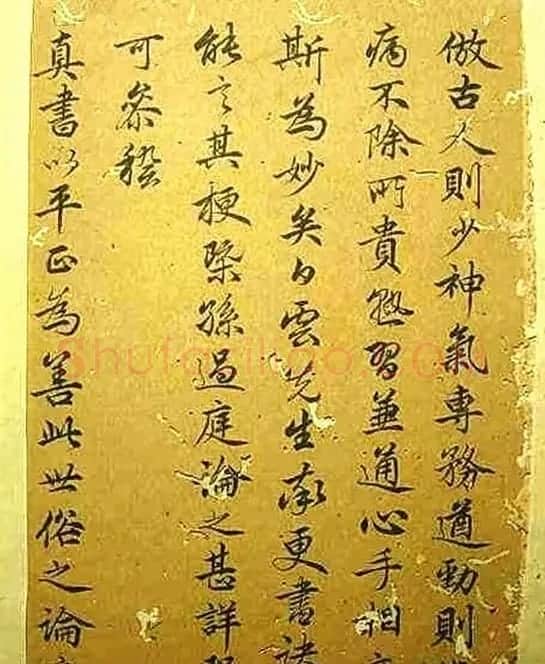 倣古人則少神氣專務遒勁則
病不除所貴熟習兼通心手相
斯為妙矣白雲先生率更書訣
能言其梗槩孫過庭論之甚詳
可叅稽
真書以平正為善此世俗之論